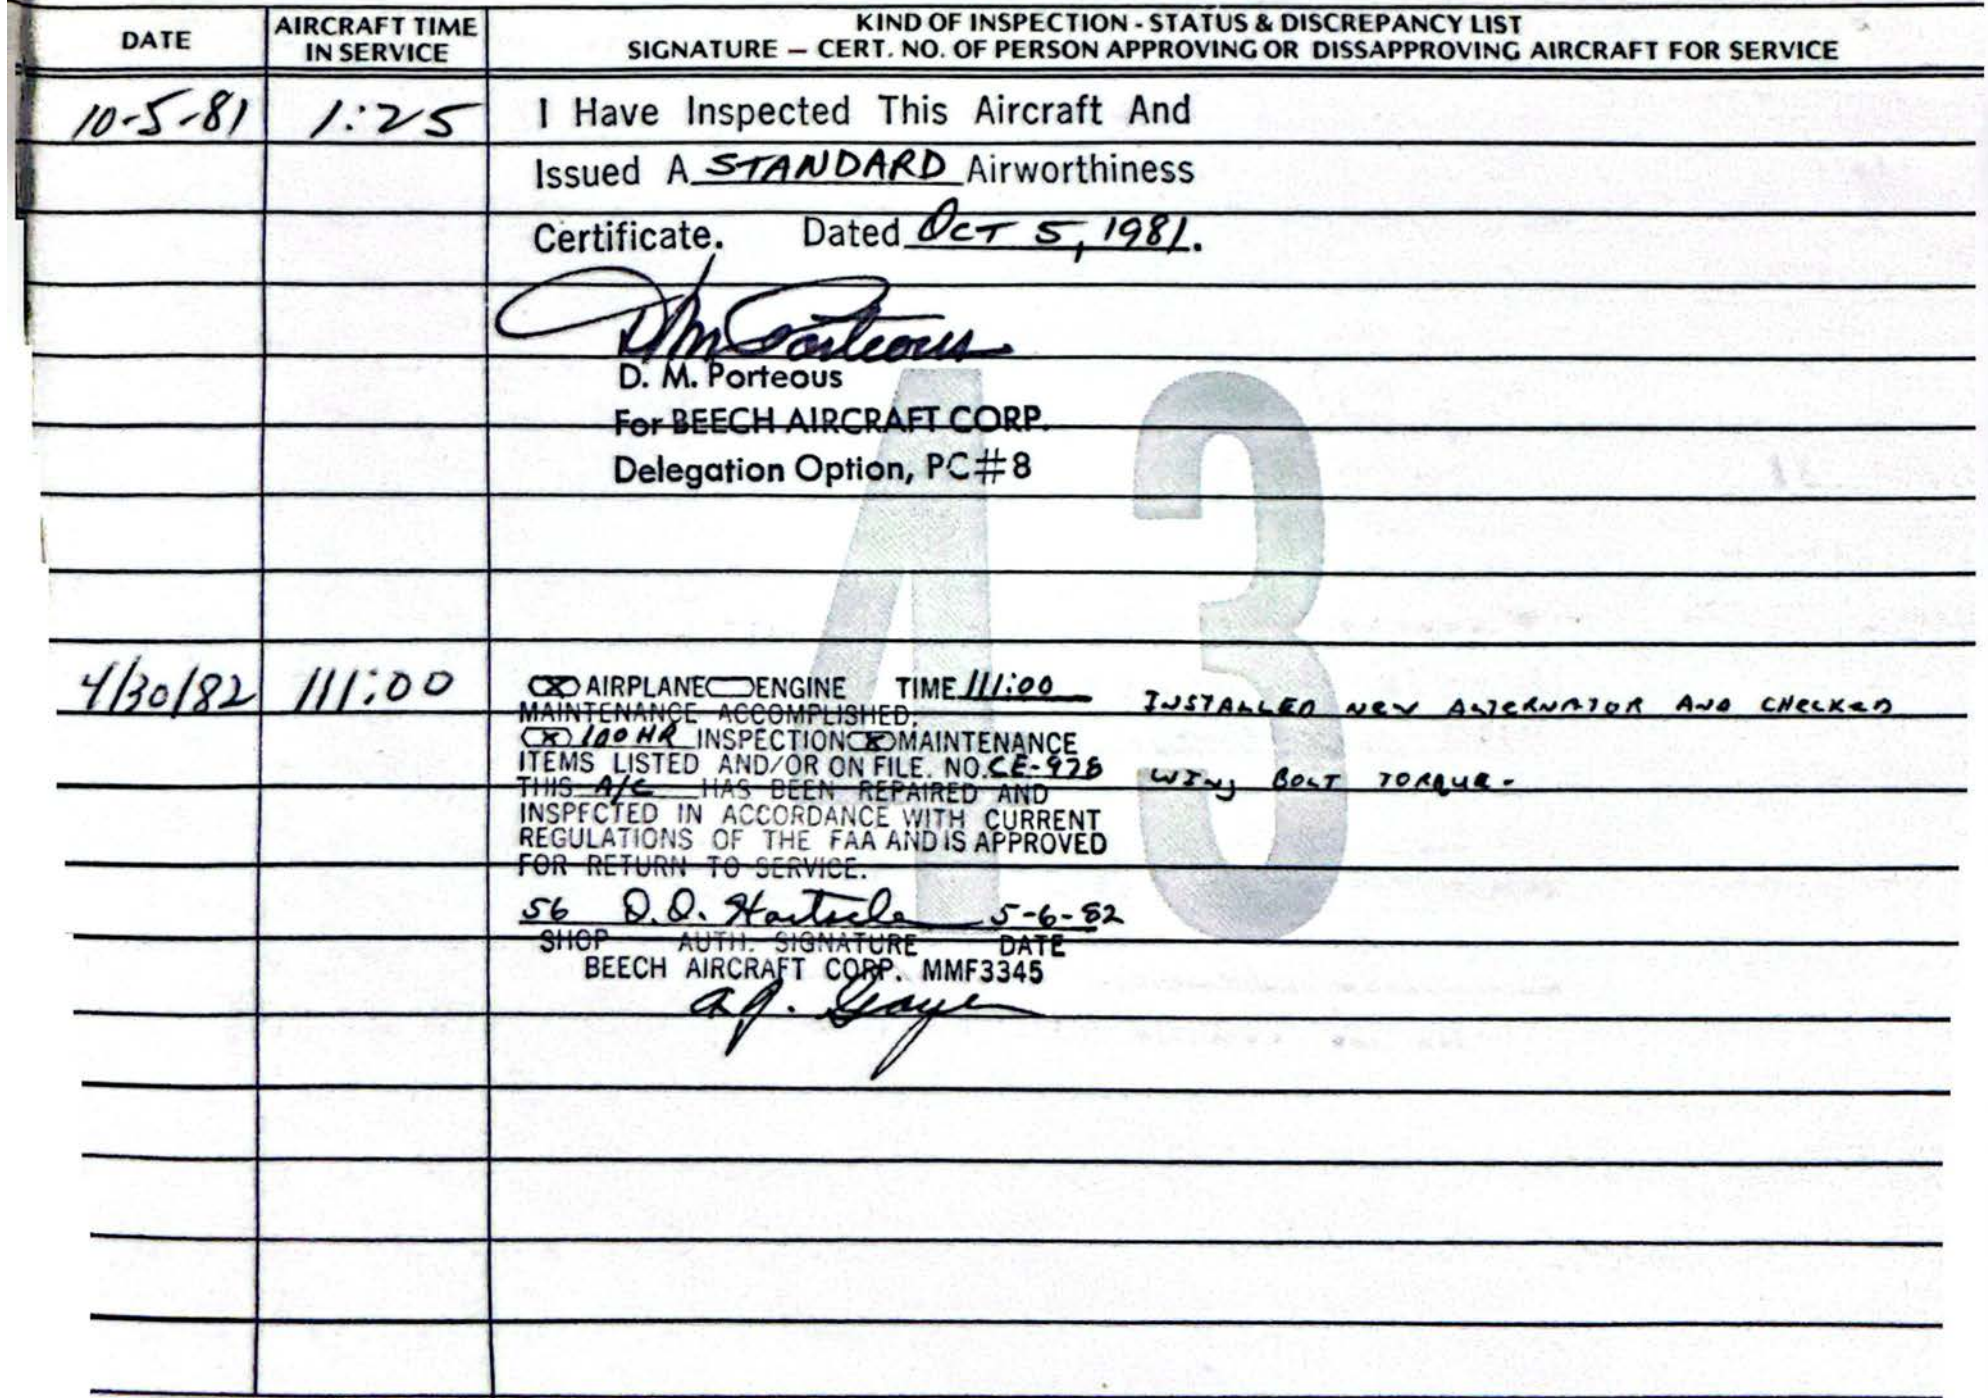 DATE
AIRCRAFT TIME
IN SERVICE
KIND OF INSPECTION - STATUS & DISCREPANCY LIST
SIGNATURE — CERT. NO. OF PERSON APPROVING OR DISSAPPROVING AIRCRAFT FOR SERVICE
10-5-81 1:25 I Have Inspected This Aircraft And
Issued A STANDARD Airworthiness
Certificate. Dated OCT 5, 1981.
DM Porteous
D. M. Porteous
For BEECH AIRCRAFT CORP.
Delegation Option, PC#8
43
4/30/82 111:00 (X) AIRPLANE ENGINE TIME 111:00
MAINTENANCE ACCOMPLISHED.
(X) 100 HR INSPECTION (X) MAINTENANCE
ITEMS LISTED AND/OR ON FILE. NO. CE-978
THIS A/C HAS BEEN REPAIRED AND
INSPECTED IN ACCORDANCE WITH CURRENT
REGULATIONS OF THE FAA AND IS APPROVED
FOR RETURN TO SERVICE.
56 D.D. 5-6-82
SHOP AUTH. SIGNATURE DATE
BEECH AIRCRAFT CORP. MMF3345
INSTALLED NEW ALTERNATOR AND CHECKED
WING BOLT TORQUE.